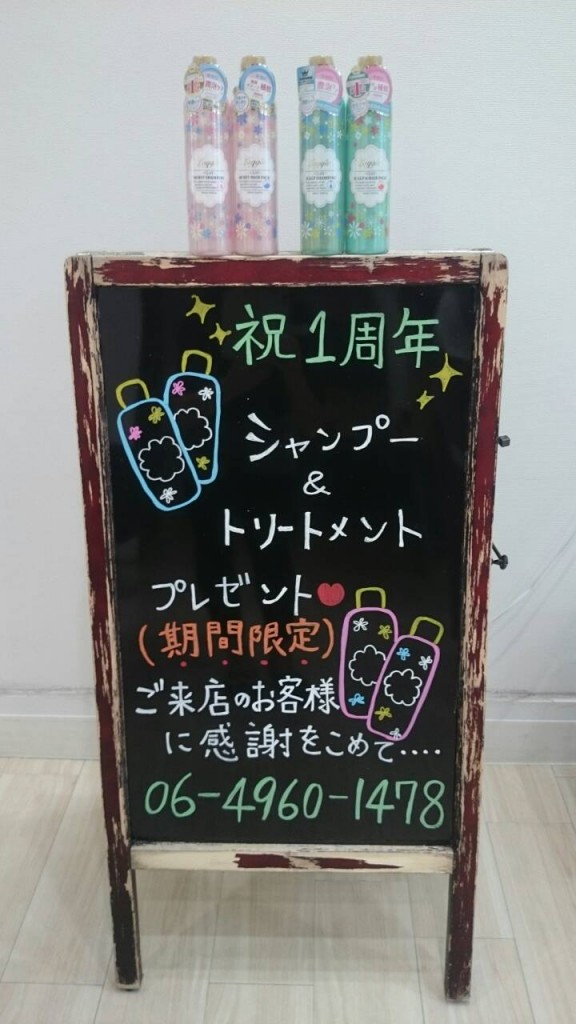 祝1周年
シャンプー
&
トリートメント
プレゼント
(期間限定)
ご来店のお客様
に感謝をこめて....
06-4960-1478